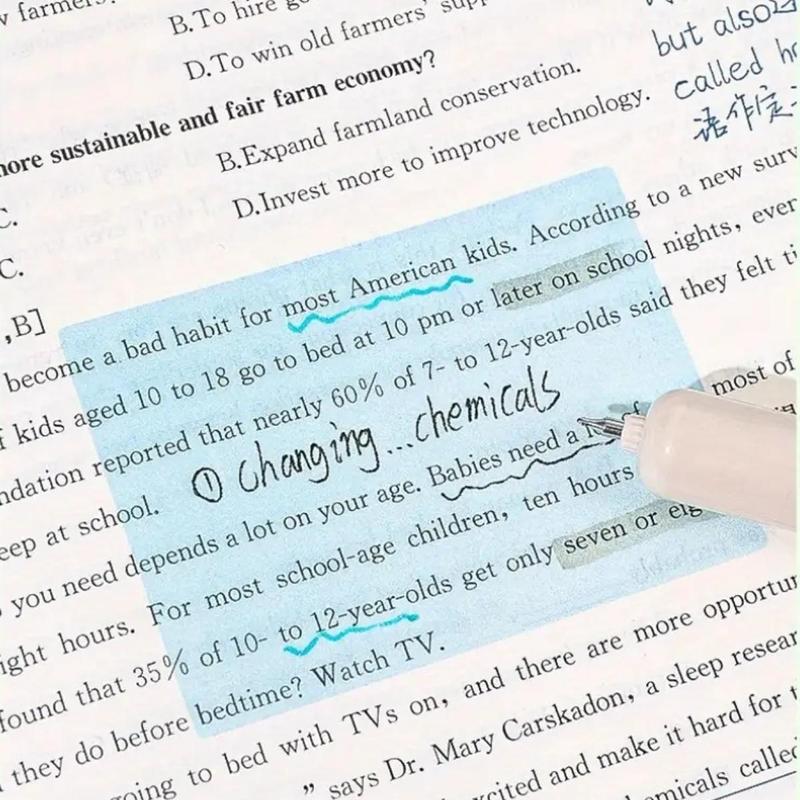 B.To hire
but also
D.To win old farmers'
called
more sustainable and fair farm economy?
B.Expand farmland conservation.
语作定
C.
D.Invest more to improve technology.
C.
,B]
become a bad habit for most American kids. According to a new
kids aged 10 to 18 go to bed at 10 pm or later on school nights,
reported that nearly 60% of 7- to 12-year-olds said they felt
① Changing...chemicals
at school.
you need depends a lot on your age. Babies need a most of
hours. For most school-age children, ten hours
found that 35% of 10- to 12-year-olds get only seven or
they do before bedtime? Watch TV.
going to bed with TVs on, and there are more
" says Dr. Mary Carskadon, a sleep
and make it hard for
called